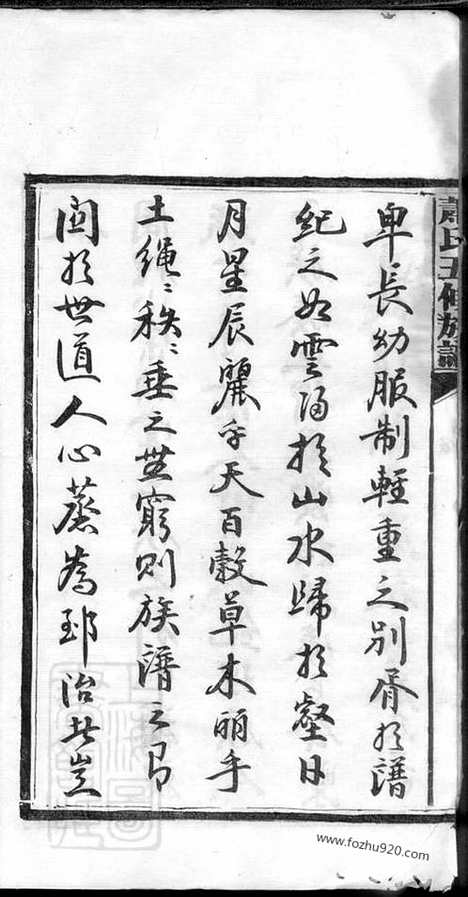 蕭氏五修族譜
卑長幼服制輕重之別胥於譜
紀之如雲於山水歸於壑日
月星辰麗乎天百穀草木丽乎
土繩〻秩〻垂之無窮則族譜之
関於世道人心蒸為郅治者豈
www.fozhu920.com